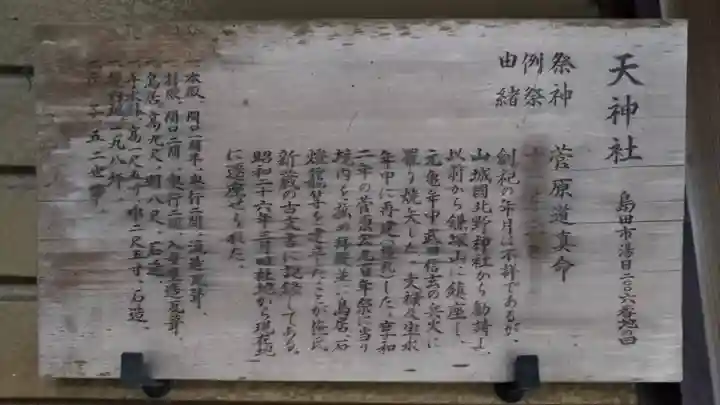 天神社
島田市湯日二〇六番地の四
祭神 菅原道真命
例祭
由緒
創祀の年月は不詳であるが、
山城国北野神社から勧請し、
以前から鎌塚山に鎮座し、
元亀年中武田信玄の兵火に
罹り焼失した。文禄及宝永
年中に再建の棟札した。享和
二年の菅原公九百年祭に当り
境内を拡め拝殿並に鳥居、石
燈籠等を
新蔵の古文書に記録してある。
昭和二十六年二月旧社地から現在地
に遷座せられた。
一 本殿、間口一間半、奥行二間、
一 拝殿、間口二間、奥行二間、入母屋造瓦葺
一 鳥居、高九尺、明八尺、石造、
高一尺五寸、巾二尺五寸、石造、
一九八坪、
五二世帯、